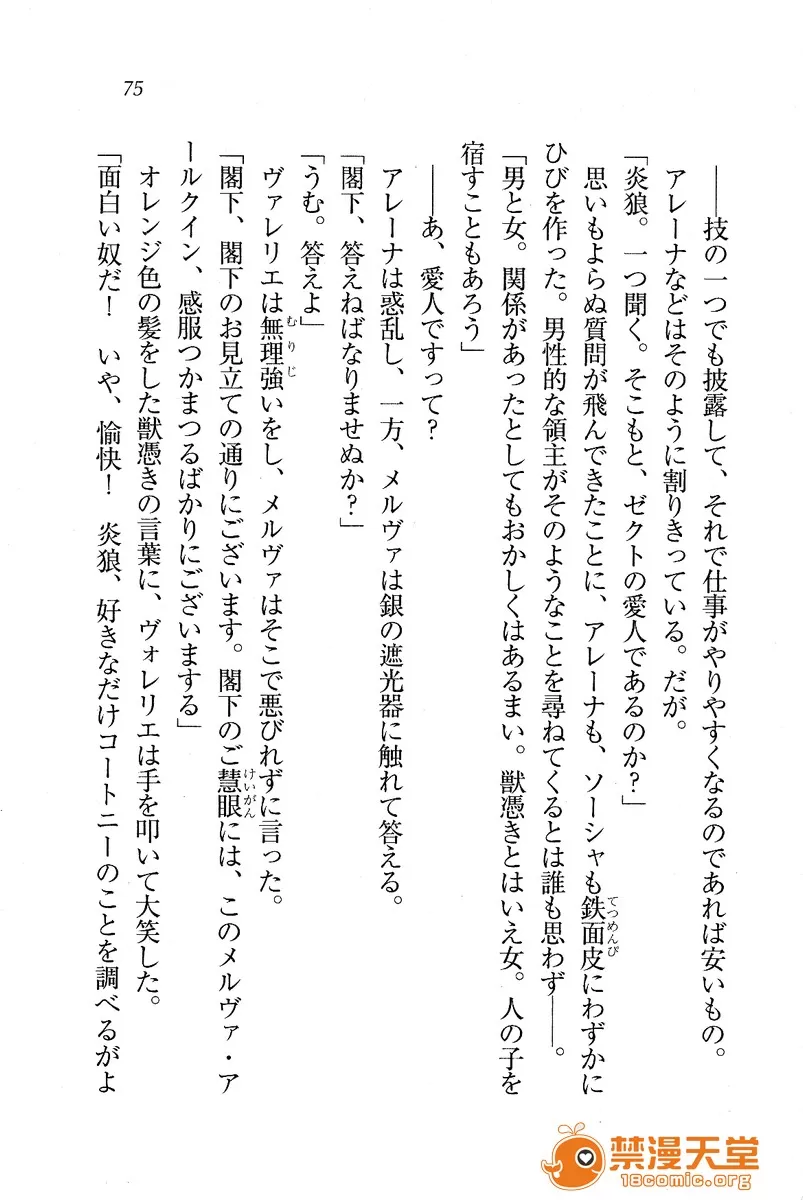 75
――技の一つでも披露して、それで仕事がやりやすくなるのであれば安いもの。
アレーナなどはそのように割りきっている。だが。
「炎狼。一つ聞く。そこもと、ゼクトの愛人であるのか?」
思いもよらぬ質問が飛んできたことに、アレーナも、ソーシャも鉄面皮にわずかに
てつめんぴ
ひびを作った。男性的な領主がそのようなことを尋ねてくるとは誰も思わず――。
「男と女。関係があったとしてもおかしくはあるまい。獣憑きとはいえ女。人の子を
宿すこともあろう」
――あ、愛人ですって?
アレーナは惑乱し、一方、メルヴァは銀の遮光器に触れて答える。
「閣下、答えねばなりませぬか?」
「うむ。答えよ」
ヴァレリエは無理強いをし、メルヴァはそこで悪びれずに言った。
むりじ
「閣下、閣下のお見立ての通りにございます。閣下のご慧眼には、このメルヴァ・ア
けいがん
ールクイン、感服つかまつるばかりにございまする」
オレンジ色の髪をした獣憑きの言葉に、ヴォレリエは手を叩いて大笑した。
「面白い奴だ! いや、愉快! 炎狼、好きなだけコートニーのことを調べるがよ
禁漫天堂
18comic.org